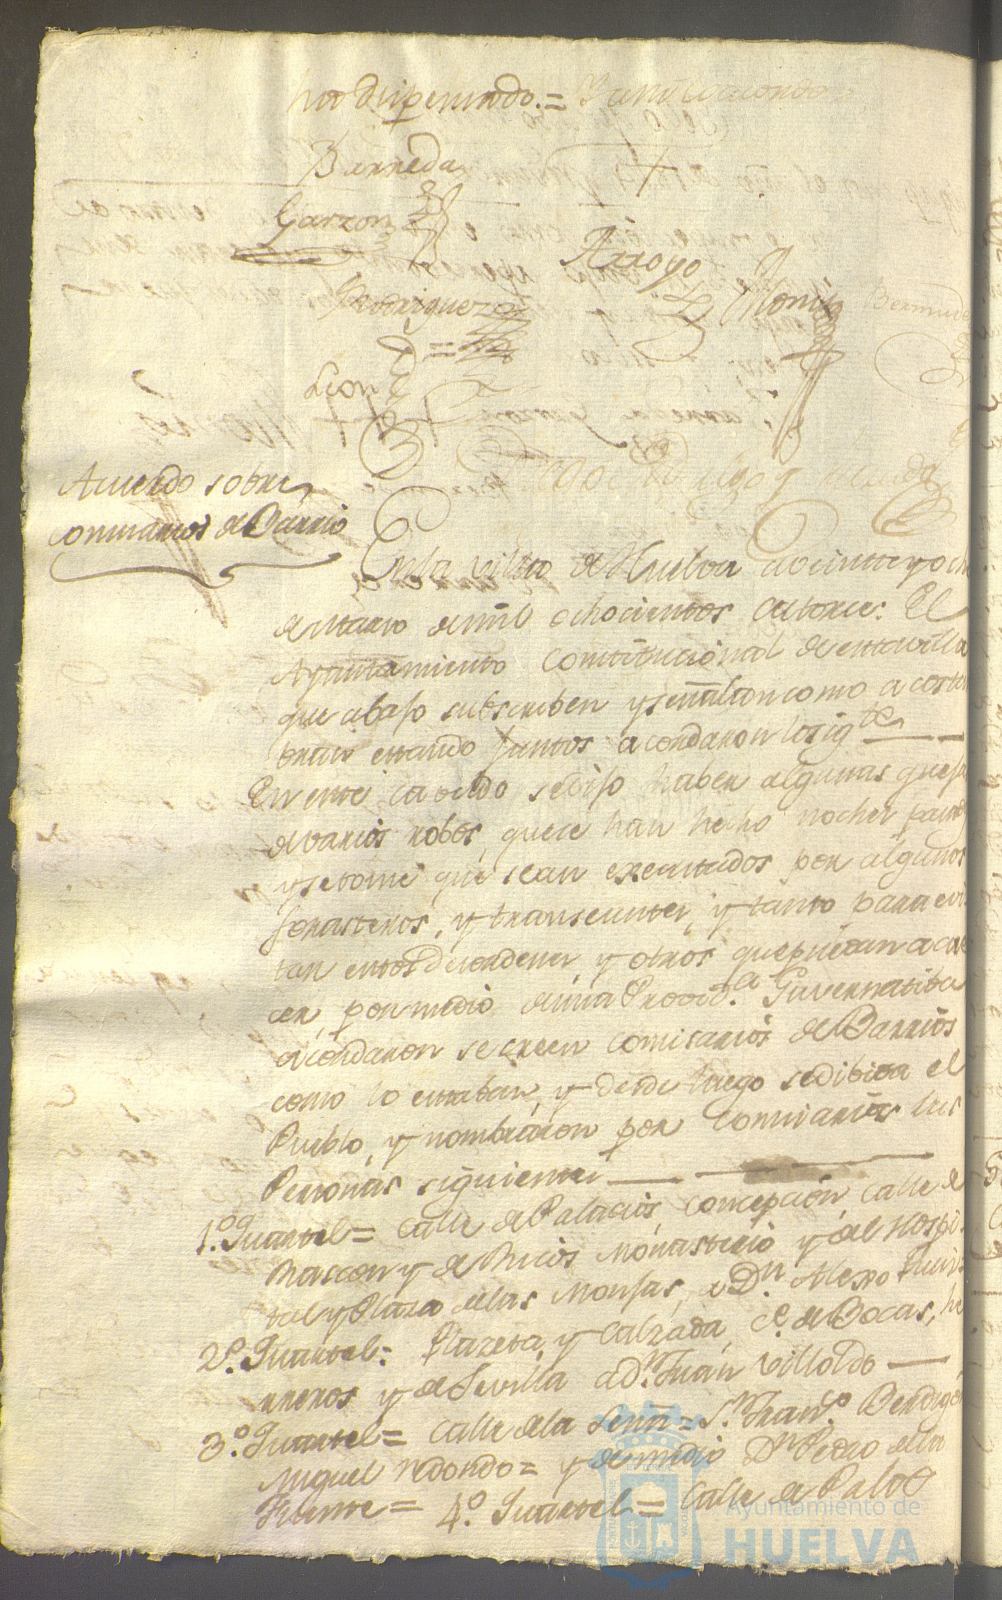 ha dispensado. =
Barreda
Garzon
Arroyo
Rodriguez
Monis
Bermude
Leon
Acuerdo sobre
comisarios de Barrio
En la villa de Huelva a veinte y och
de Marzo de mil ochocientos catorce: El
Ayuntamiento Constitucional de esta villa
que abajo subscriben y señalan como a costum
bran estando juntos acordaron lo sigte
En este cavildo se dijo haber algunas quejas
de varios robos, que se han hecho noches pasad
y se teme que sean executados por algunos
forasteros, y transeuntes, y tanto para evi
tar estos desordenes y otros que puedan acae
cer, por medio de una Provida Guvernativa
acordaron se creen comisarios de Barrios
como lo estaban, y desde luego se dibida el
Pueblo, y nombraron por comisarios las
Personas siguientes
1.º Quartel = Calle de Palacios, concepcion, calle de
Rascon y de Ricos Monasterio y del Hospi
tal y Plaza de las Monjas, a Dn. Alexo
2.º Quartel: Plazeta, y Calzada, Ce. de Bocas, he
rreros y de Sevilla a Dn. Juan Villoldo
3.º Quartel = Calle de la Señª = Sn. Franco. Berdigo
Miguel redondo = y de medio Dn Pedro de la
Fuente = 4.º Quartel = Calle de Palos
Ayuntamiento de
HUELVA